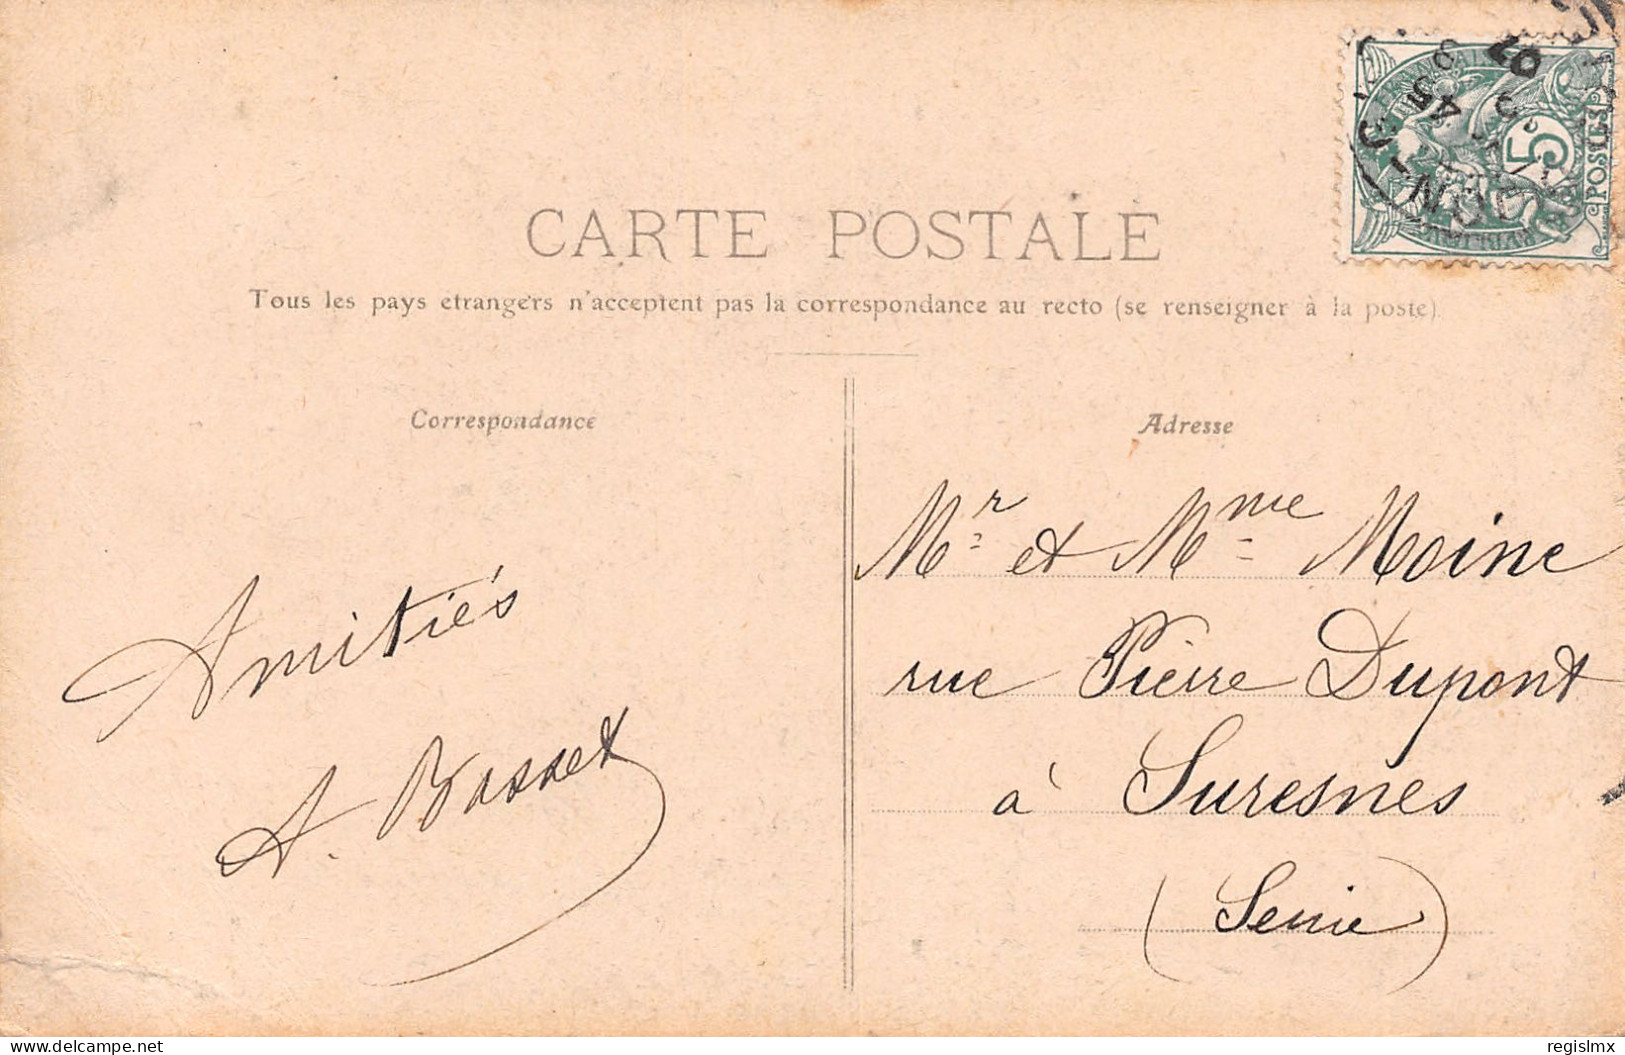 CARTE POSTALE
Tous les pays etrangers n'acceptent pas la correspondance au recto (se renseigner à la poste)
5
POSTES
Correspondance
Amitiés
A. Basset
Adresse
Mr et Mme Moine
rue Pierre Dupont
à Suresnes
(Seine)
delcampe.net
regislmx